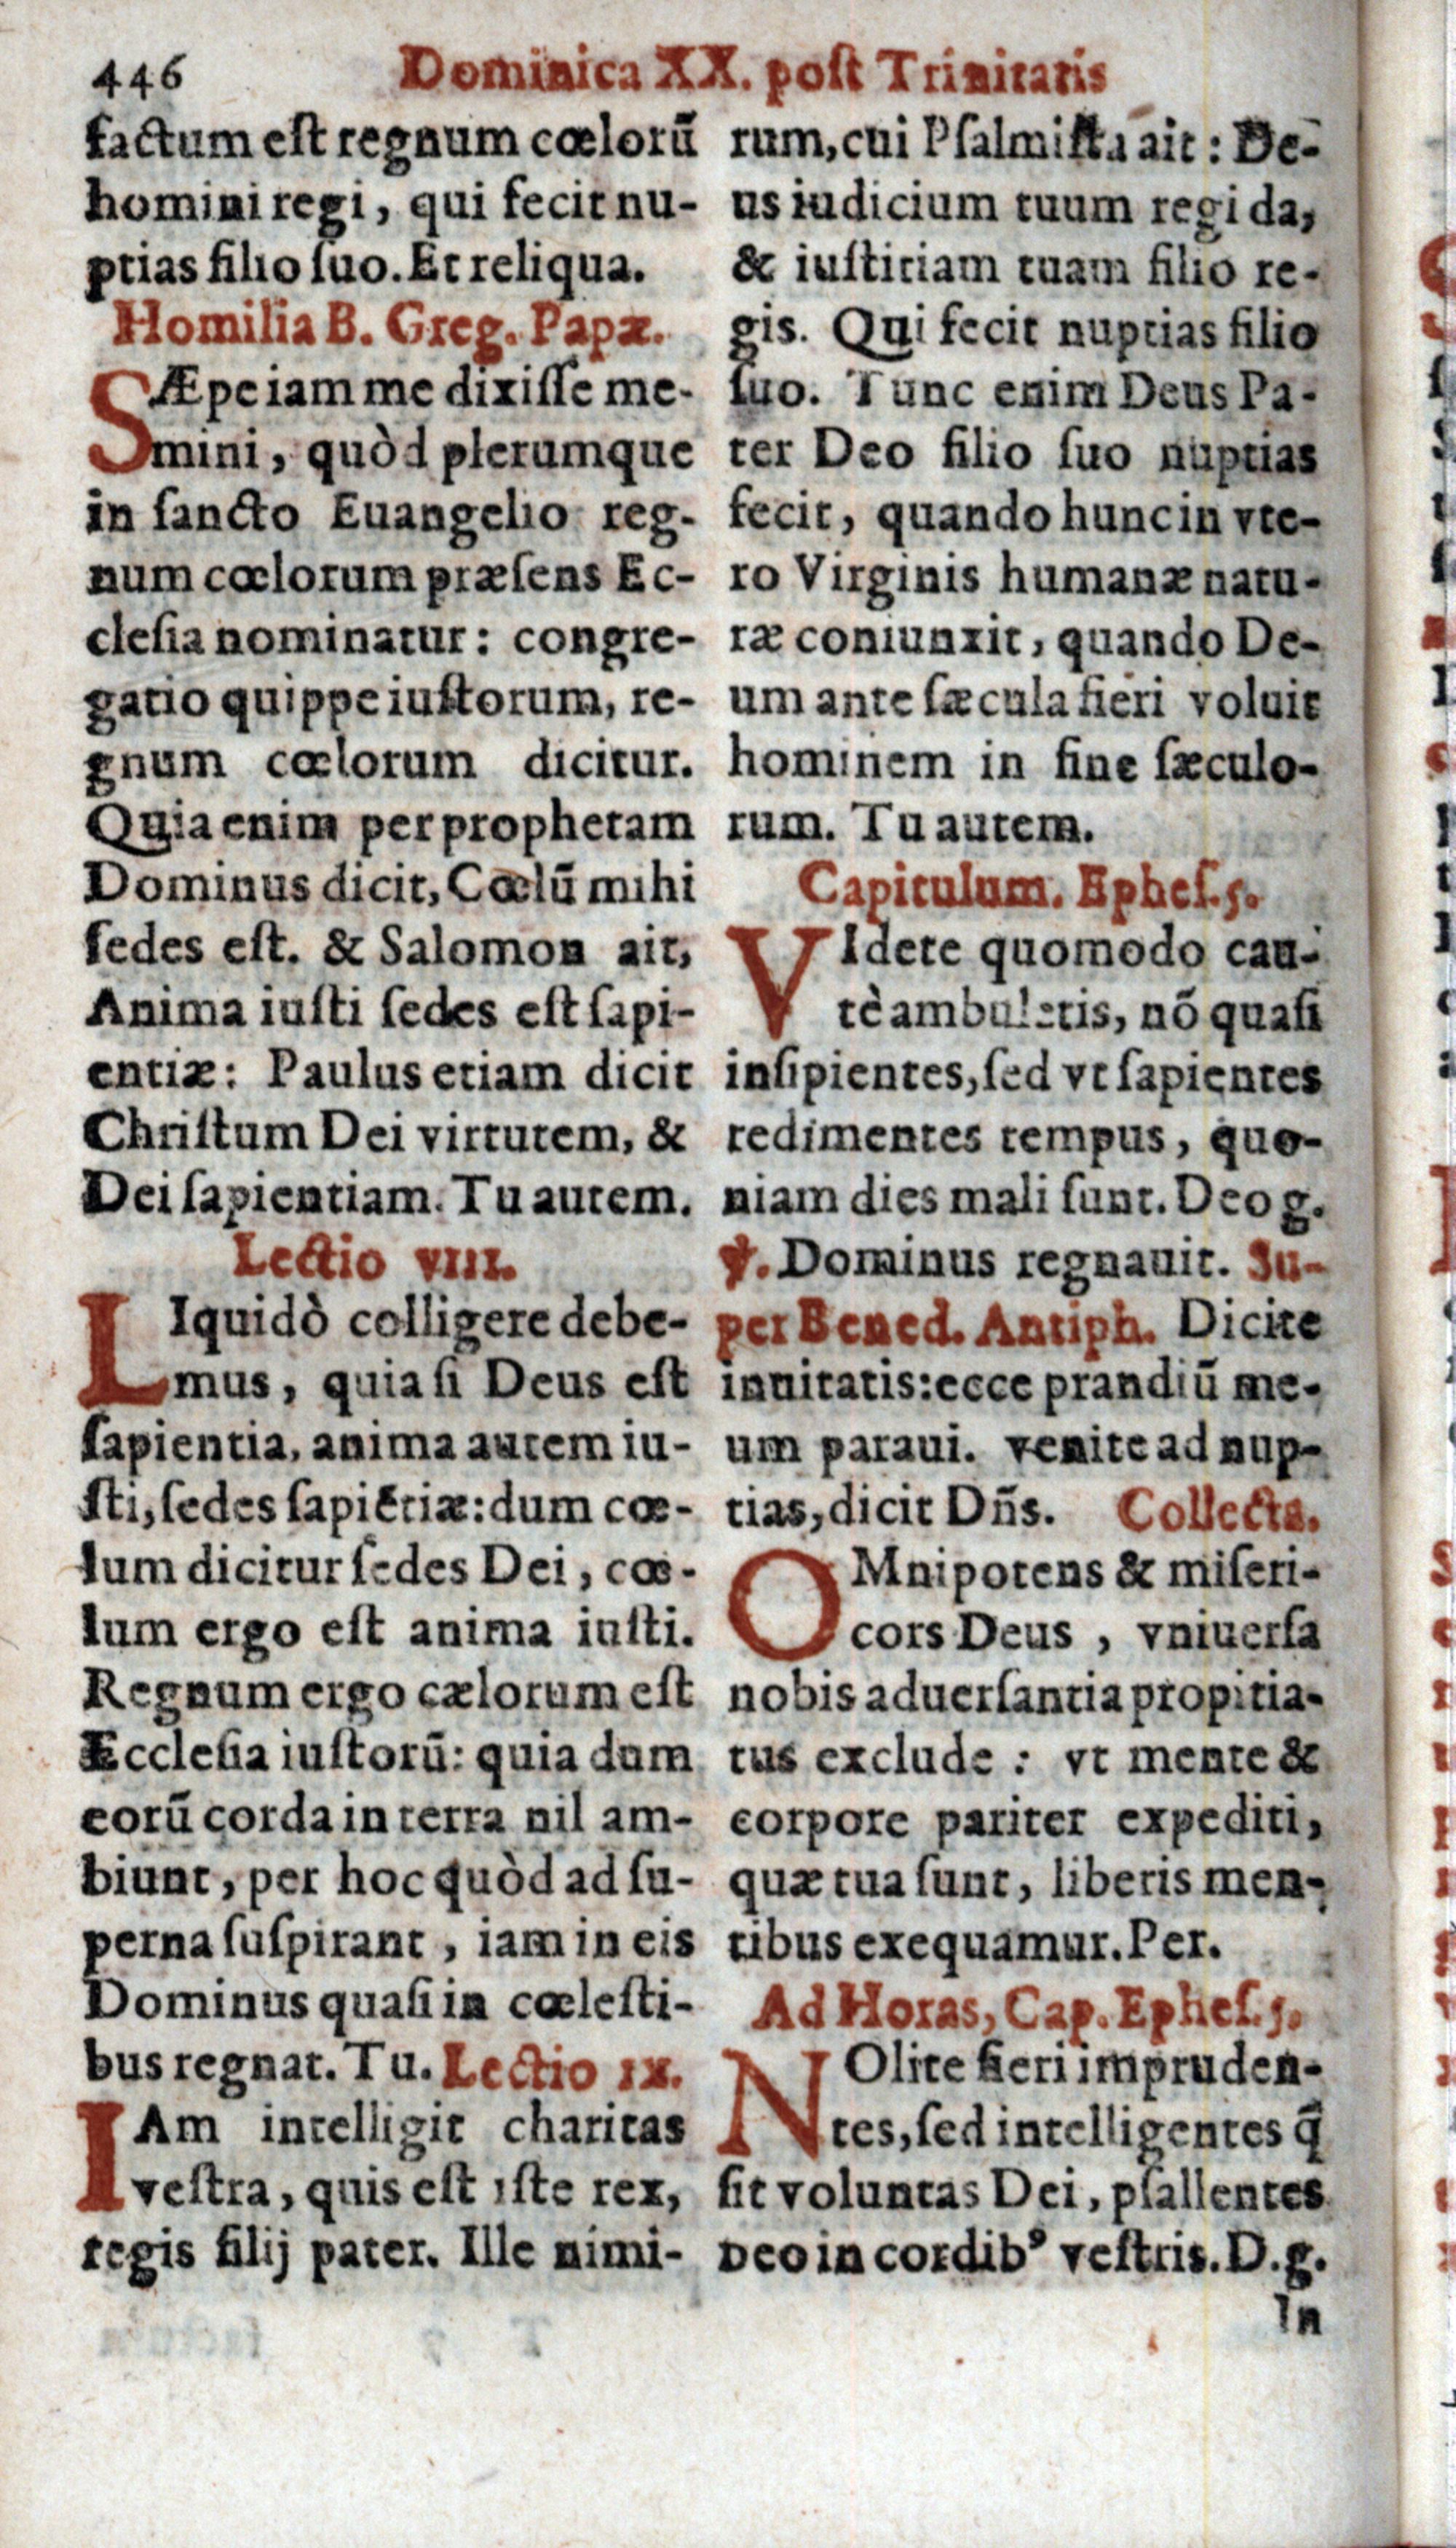 446 Dominica XX. poſt Trinitatis
factum eſt regnum cœlorũ
homini regi, qui fecit nu-
ptias filio ſuo. Et reliqua.
Homilia B. Greg. Papæ.
SÆpe iam me dixiſſe me-
mini, quòd plerumque
in ſancto Euangelio reg-
num cœlorum præſens Ec-
cleſia nominatur: congre-
gatio quippe iuſtorum, re-
gnum cœlorum dicitur.
Quia enim per prophetam
Dominus dicit, Cœlũ mihi
ſedes eſt. & Salomon ait,
Anima iuſti ſedes eſt ſapi-
entiæ: Paulus etiam dicit
Chriſtum Dei virtutem, &
Dei ſapientiam. Tu autem.
Lectio VIII.
LIquidò colligere debe-
mus, quia ſi Deus eſt
ſapientia, anima autem iu-
ſti, ſedes ſapiẽtiæ: dum cœ-
lum dicitur ſedes Dei, cœ-
lum ergo eſt anima iuſti.
Regnum ergo cælorum eſt
Eccleſia iuſtorũ: quia dum
eorũ corda in terra nil am-
biunt, per hoc quòd ad ſu-
perna ſuſpirant, iam in eis
Dominus quaſi in cœleſti-
bus regnat. Tu. Lectio IX.
IAm intelligit charitas
veſtra, quis eſt iſte rex,
regis filij pater. Ille nimi-
rum, cui Pſalmiſta ait: De-
us iudicium tuum regi da,
& iuſtitiam tuam filio re-
gis. Qui fecit nuptias filio
ſuo. Tunc enim Deus Pa-
ter Deo filio ſuo nuptias
fecit, quando hunc in vte-
ro Virginis humanæ natu-
ræ coniunxit, quando De-
um ante ſæcula fieri voluit
hominem in fine ſæculo-
rum. Tu autem.
Capitulum. Epheſ. 5.
VIdete quomodo cau-
tè ambuletis, nõ quaſi
inſipientes, ſed vt ſapientes
redimentes tempus, quo-
niam dies mali ſunt. Deo g.
℣. Dominus regnauit. Su-
per Bened. Antiph. Dicite
inuitatis: ecce prandiũ me-
um paraui. venite ad nup-
tias, dicit Dñs. Collecta.
OMnipotens & miſeri-
cors Deus, vniuerſa
nobis aduerſantia propitia-
tus exclude: vt mente &
corpore pariter expediti,
quæ tua ſunt, liberis men-
tibus exequamur. Per.
Ad Horas, Cap. Epheſ. 5.
NOlite fieri impruden-
tes, ſed intelligentes q̃
ſit voluntas Dei, pſallentes
Deo in cordibꝰ veſtris. D. g.
In